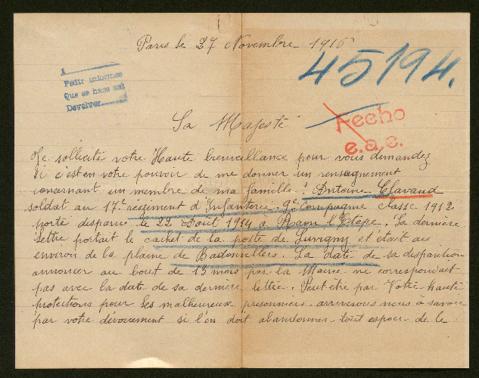 Paris le 27 Novembre 1915
45194.
Pedir informes
Que se hace mal
Devolver
Hecho
e.a.c.
Sa Majesté
Je sollicite votre Haute bienveillance pour vous demandez
si c'est en votre pouvoir de me donner un renseignement
concernant un membre de ma famille : Antoine Clavaud
soldat au 17e regiment d'Infanterie 9e Compagnie classe 1912
porté disparu le 23 Août 1914 à Raon l'Etape. Sa dernière
lettre portait le cachet de la poste de Luvigny et était au
environ de la plaine de Badonvillers. La date de sa disparition
annoncer au bout de 13 mois par la Mairie ne correspondait
pas avec la date de sa dernière lettre. Peut être par Votre haute
protections pour les malheureux prisonniers arriverons nous à savoir
par votre dévouement si l'on doit abandonner tout espoir de le